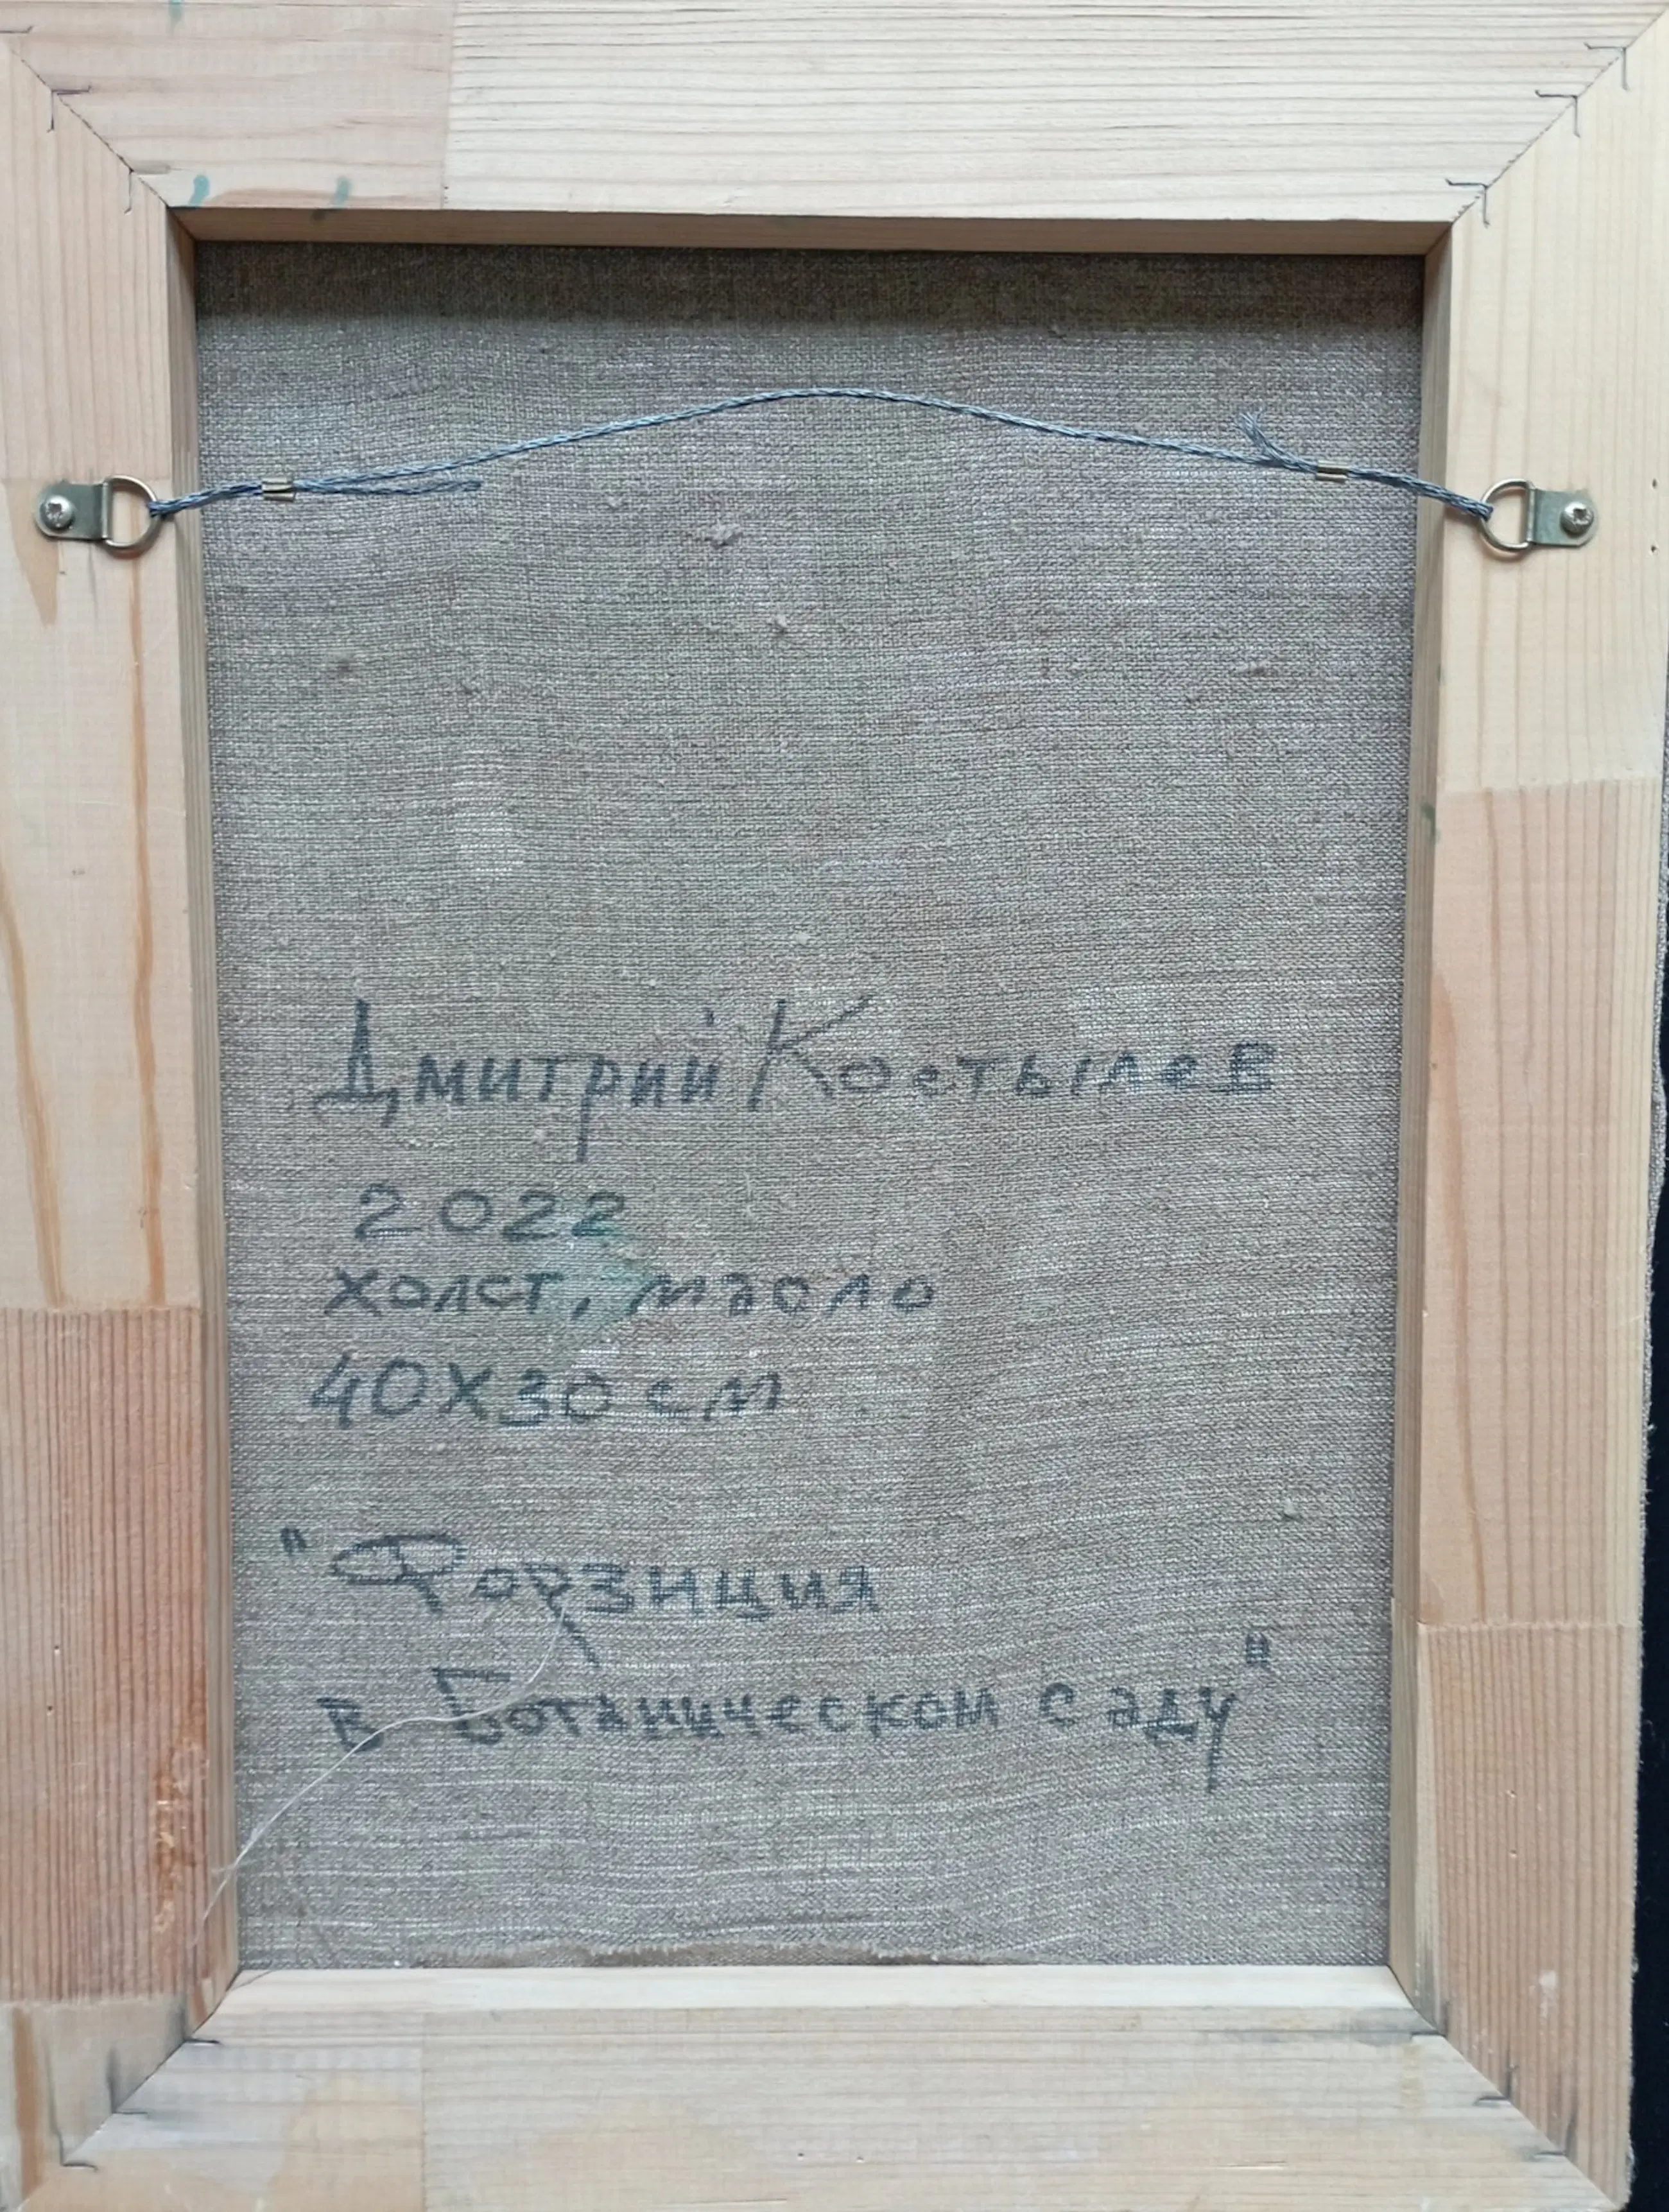 Дмитрий Костылев
2022
холст, масло
40х30 см
"Форзиция
в Ботаническом саду"